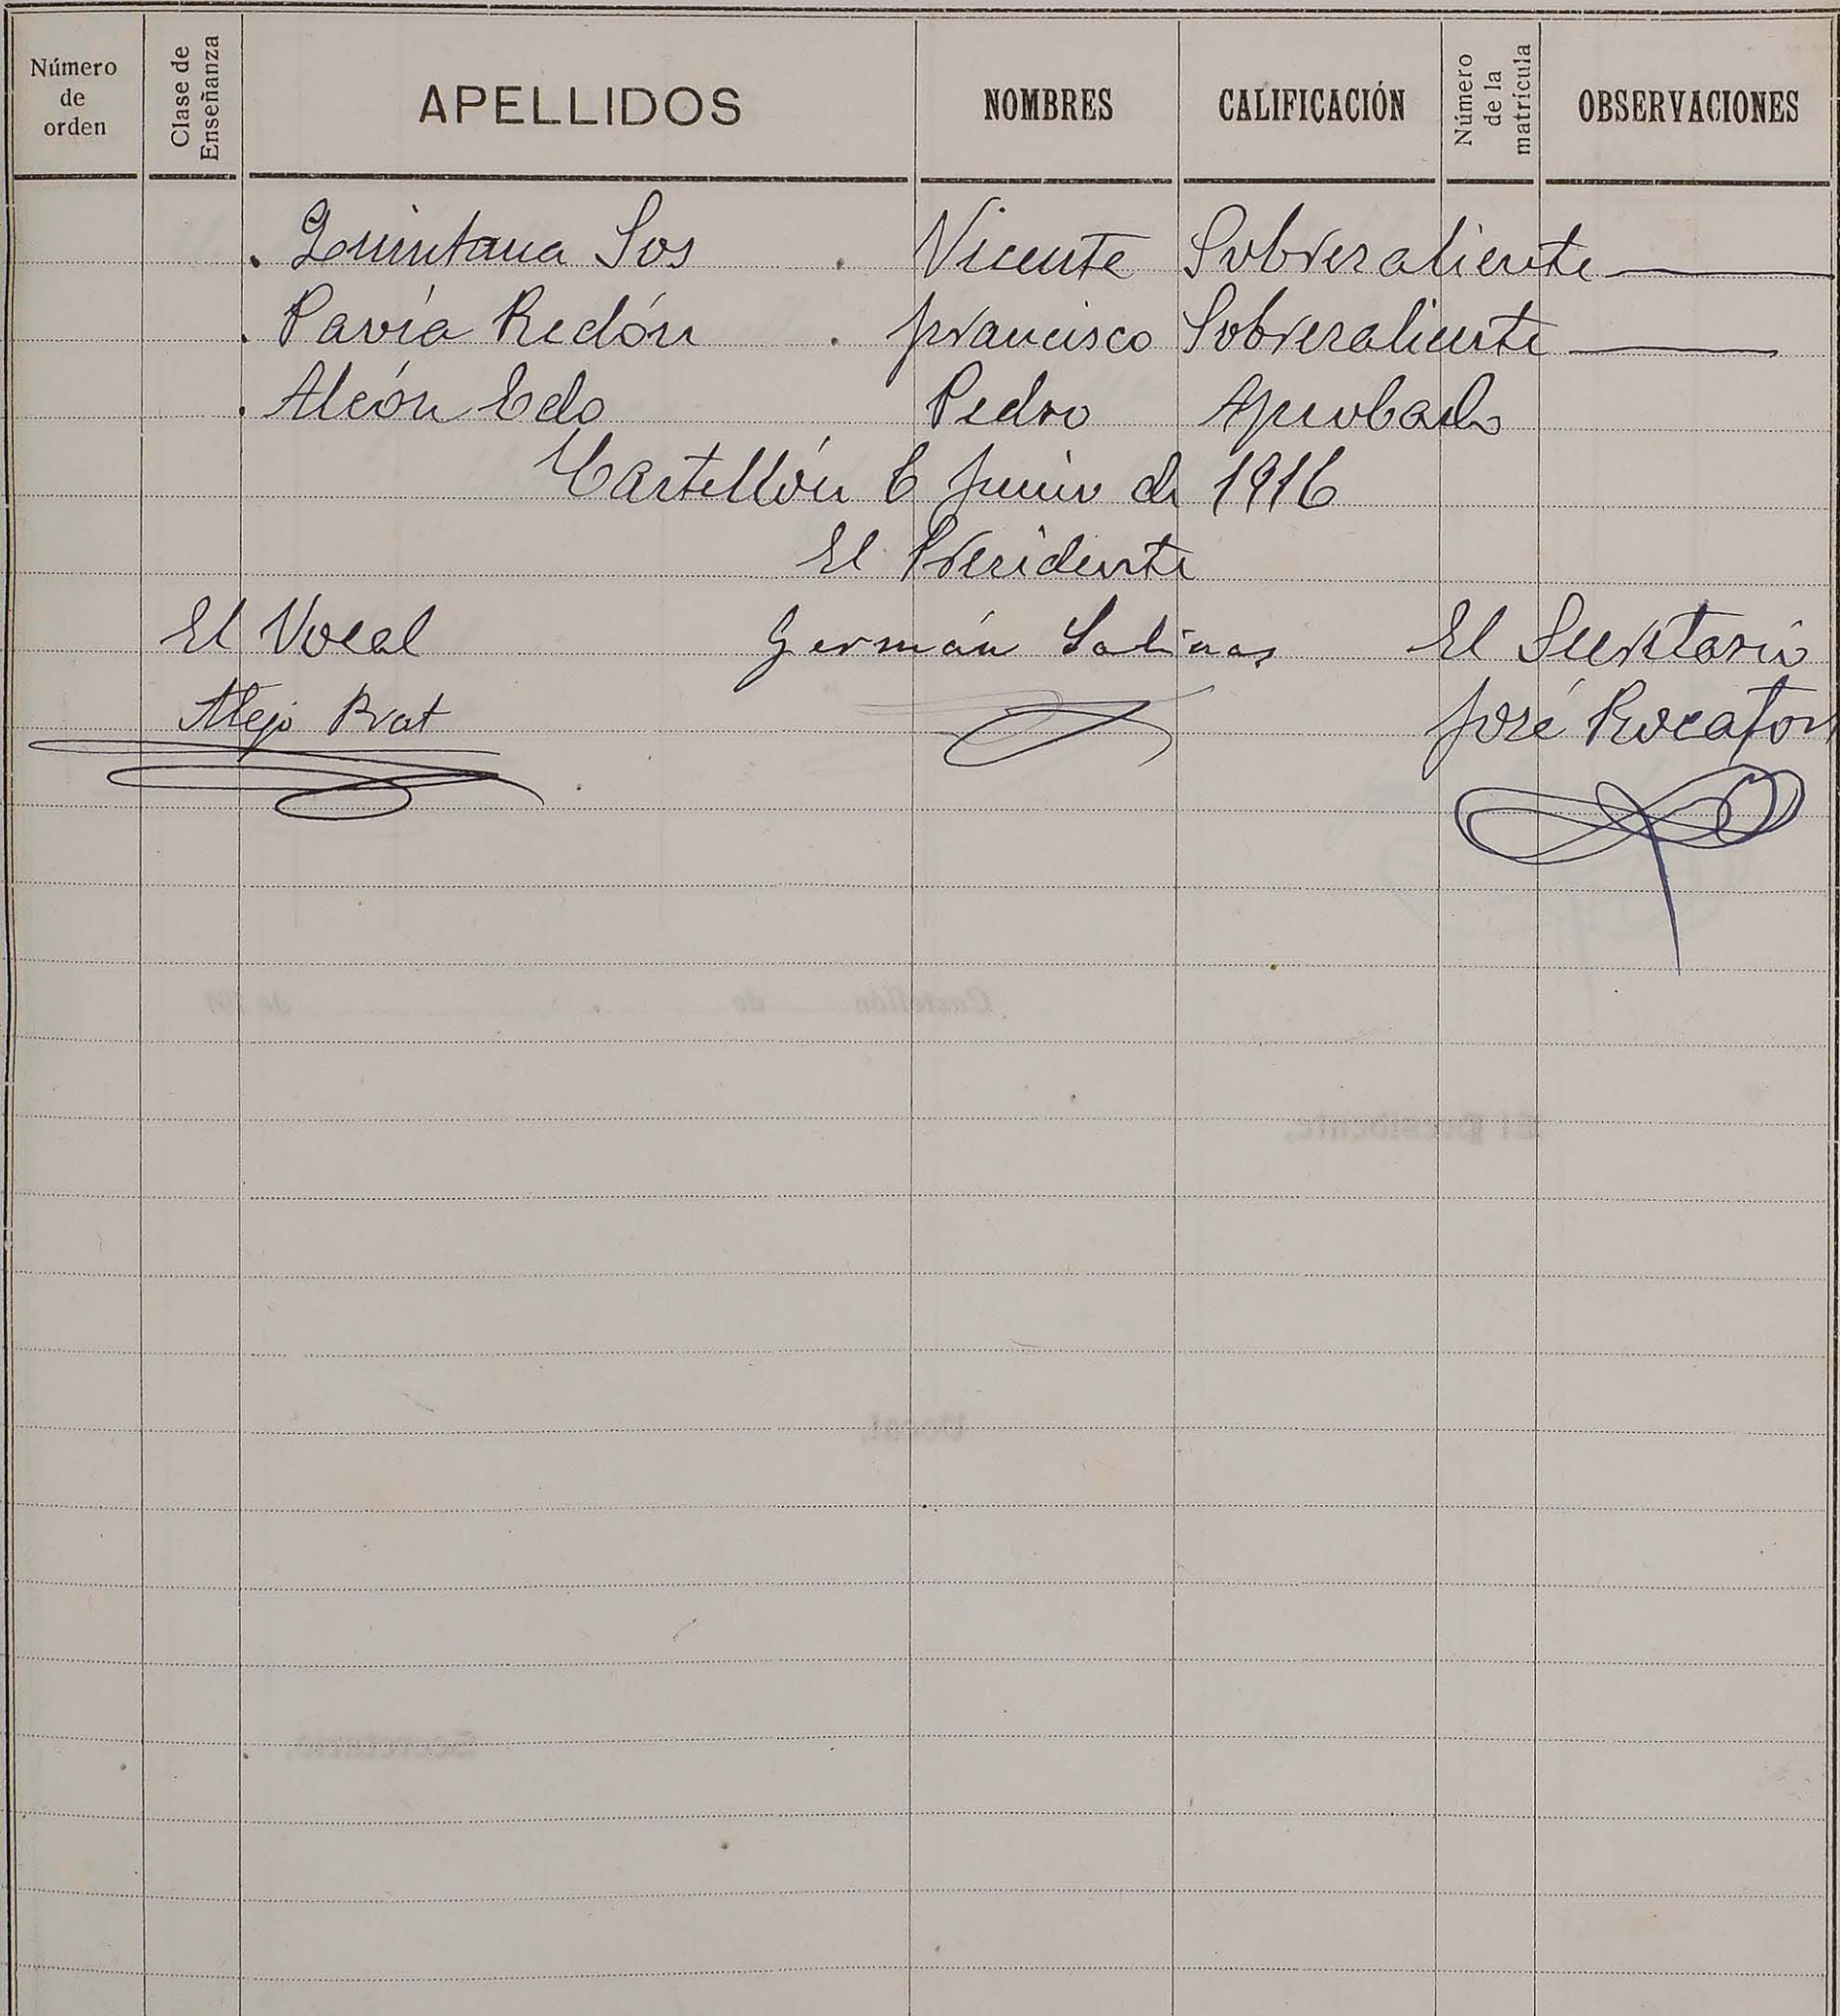 Número de orden Clase de Enseñanza APELLIDOS NOMBRES CALIFICACIÓN Número de la matrícula OBSERVACIONES
Quintana Sos Vicente Sobresaliente
Pavía Redón Francisco Sobresaliente
Alcón Edo Pedro Aprobado
Castellón 6 Junio de 1916
El Presidente
El Vocal Germán Salinas El Secretario
Alejo Prat José Rocafort